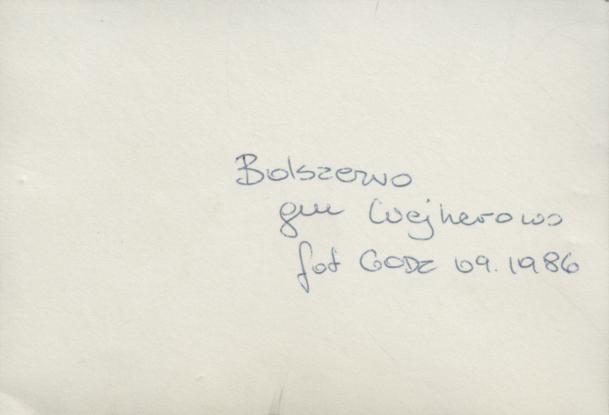 Bolszewo
gm Wejherowo
fot GODZ 09.1986